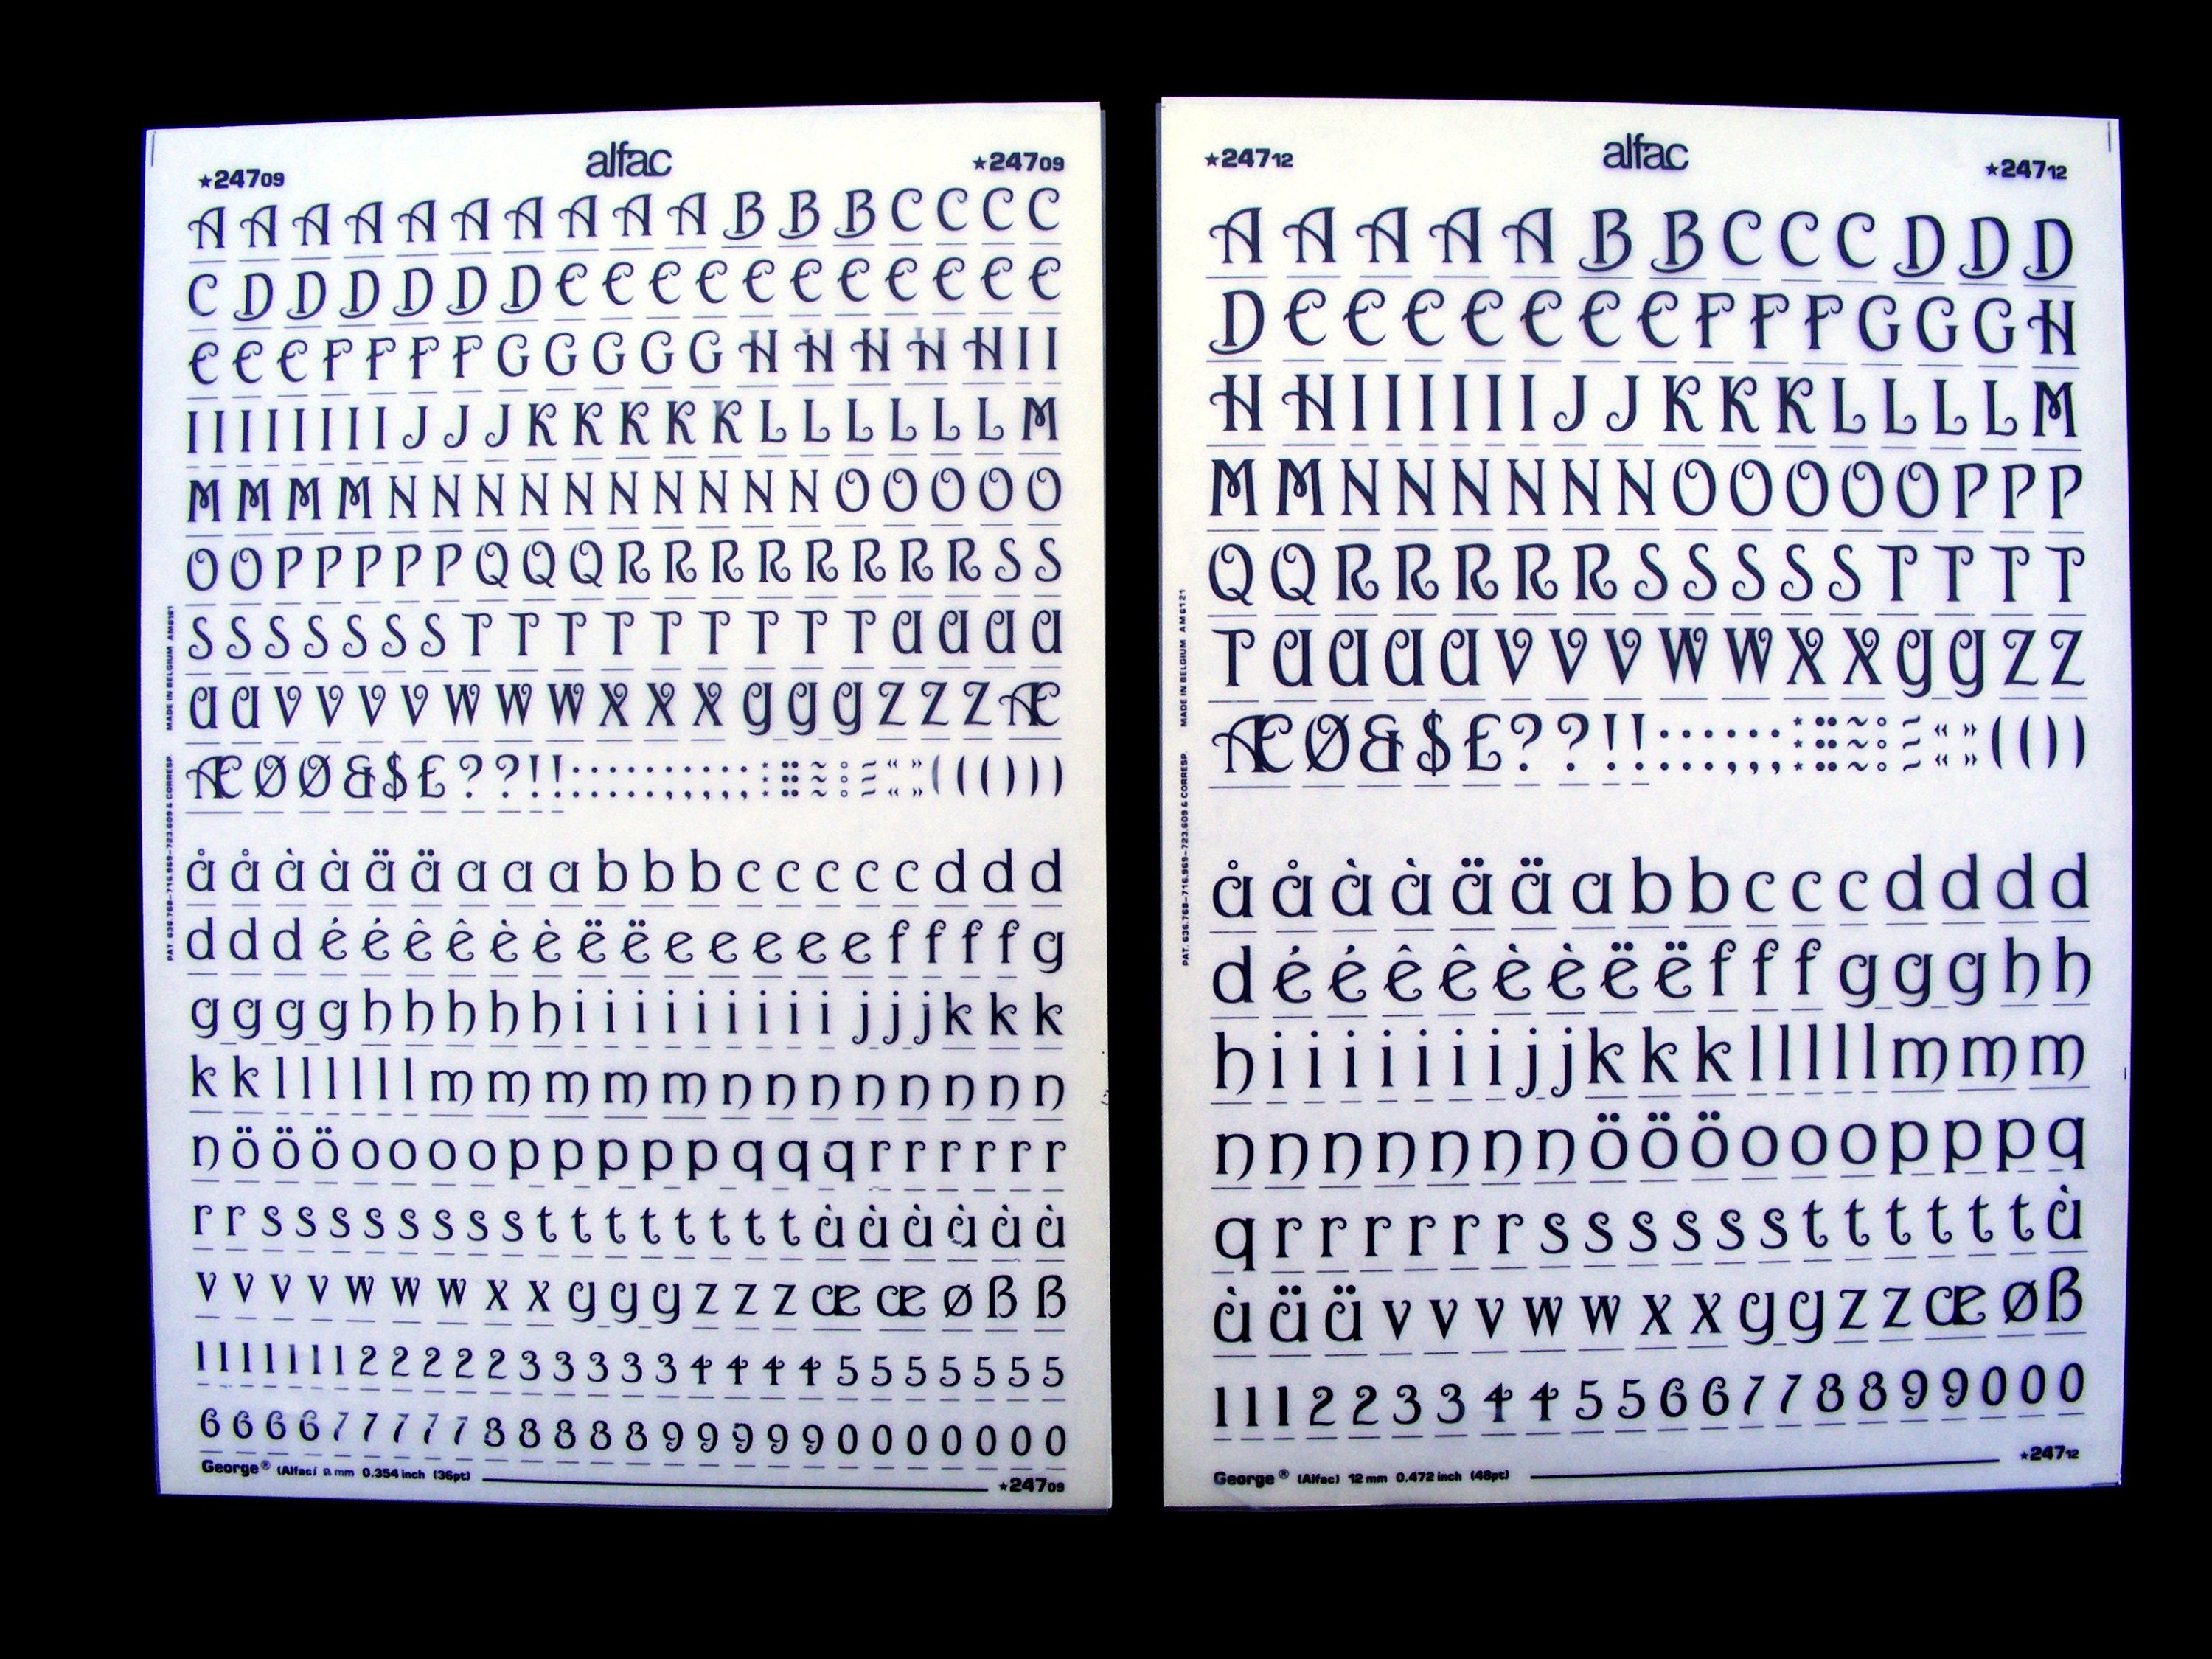 ★24709 alfac ★24709
A A A A A A A A A A B B B C C C C
C D D D D D D E E E E E E E E E E E
E E E F F F F G G G G G H H H H H I I
I I I I I I I I J J J K K K K K L L L L L L M
M M M M N N N N N N N N N N O O O O O
O O P P P P P Q Q Q R R R R R R R R S S
S S S S S S S T T T T T T T T T U U U U
U U V V V V W W W X X X Y Y Y Z Z Z Æ
Æ Ø Ø & $ £ ? ? ! ! ( ( ( ) ) )
å å à à ä ä a a a b b b c c c c c d d d
d d d é é ê ê è è ë ë e e e e e f f f f g
g g g g h h h h h i i i i i i i i i j j j k k k
k k l l l l l l m m m m m n n n n n n n n
n ö ö ö o o o o p p p p p q q q r r r r r r
r r s s s s s s s s t t t t t t t t ù ù ù ù ù ù
v v v v w w w x x y y y z z z æ æ ø ß ß
1 1 1 1 1 1 1 2 2 2 2 2 3 3 3 3 3 4 4 4 4 5 5 5 5 5 5 5
6 6 6 6 7 7 7 7 7 8 8 8 8 8 9 9 9 9 9 0 0 0 0 0 0 0
George® (Alfac) 9 mm 0.354 inch (36pt) ★24709
PAT. 636.768-716.969-723.609 & CORRESP. MADE IN BELGIUM
★24712 alfac ★24712
A A A A A B B C C C D D D
D E E E E E E E F F F G G G H
H H I I I I I I J J K K K L L L L M
M M N N N N N N O O O O O P P P
Q Q R R R R R S S S S S T T T T
T U U U U V V V W W X X Y Y Z Z
Æ Ø & $ £ ? ? ! ! ( ( ) )
å å à à ä ä a b b c c c d d d d
d é é ê ê è è ë ë f f f g g g h h
h i i i i i i i j j k k k l l l l l m m m
n n n n n n n ö ö ö o o o p p p q
q r r r r r r s s s s s s t t t t t t ù
ù ü ü v v v w w x x y y z z æ ø ß
1 1 1 2 2 3 3 4 4 5 5 6 6 7 7 8 8 9 9 0 0 0
George® (Alfac) 12 mm 0.472 inch (48pt) ★24712
PAT. 636.768-716.969-723.609 & CORRESP. MADE IN BELGIUM AM6121